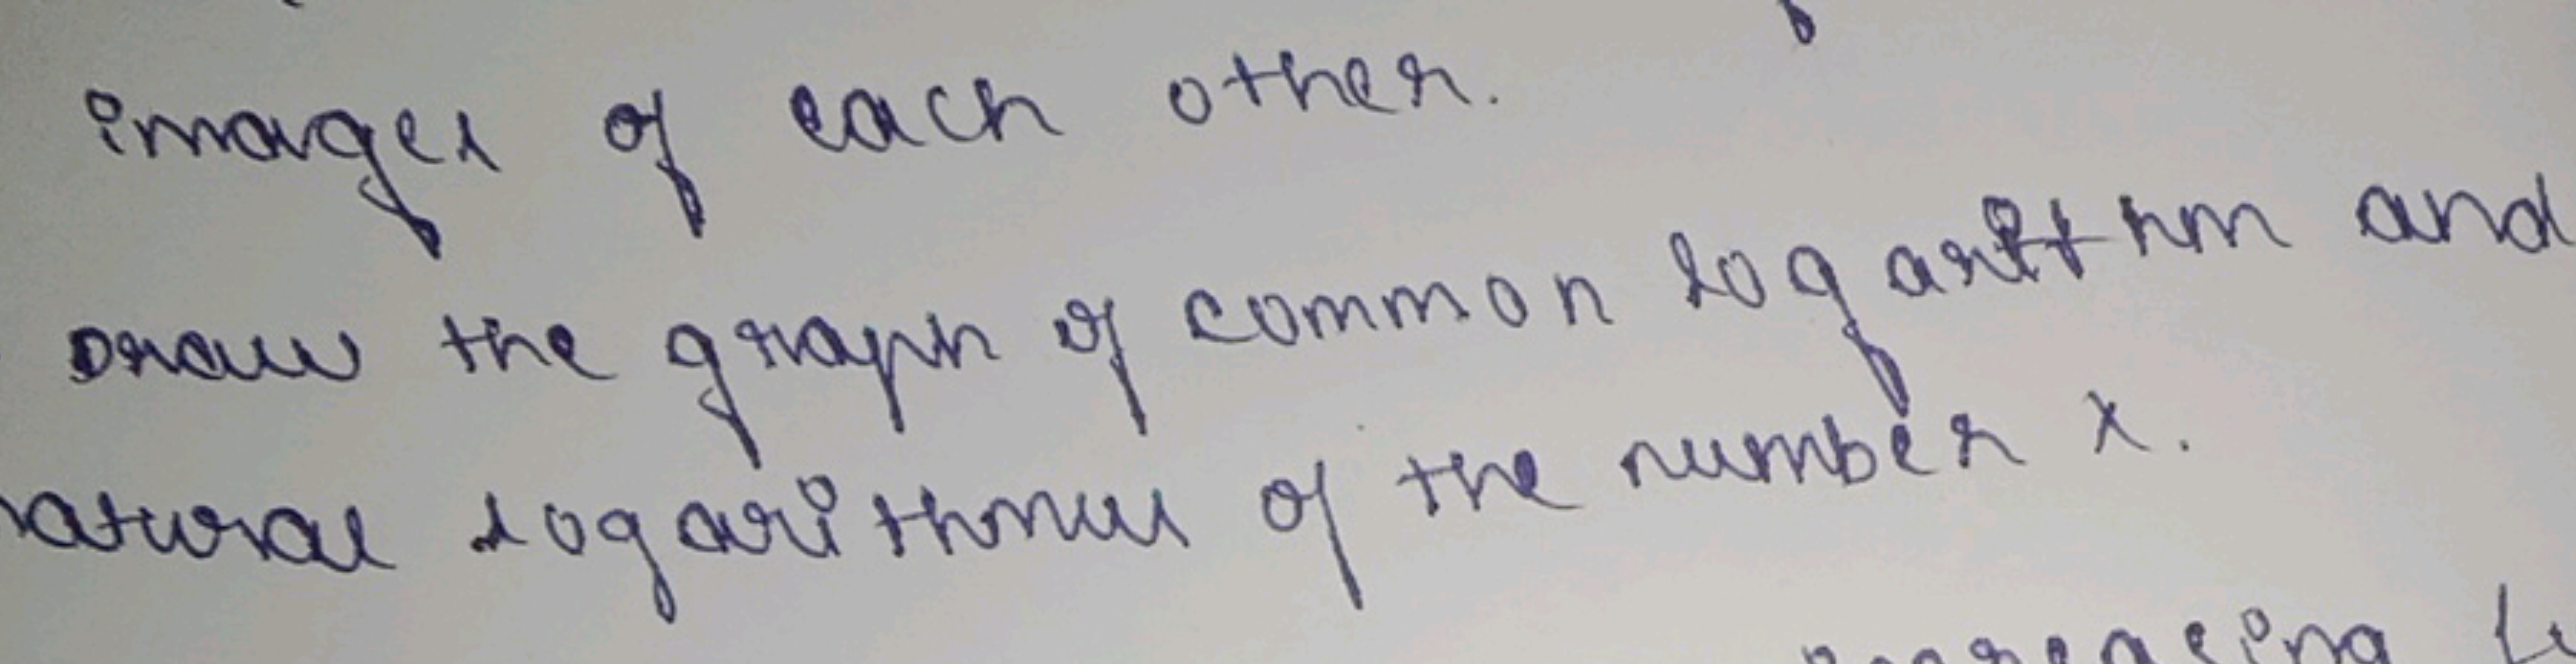 images of each other.
Draw the graph of common logarithm and
natural logarithmus of the number x.
increasing